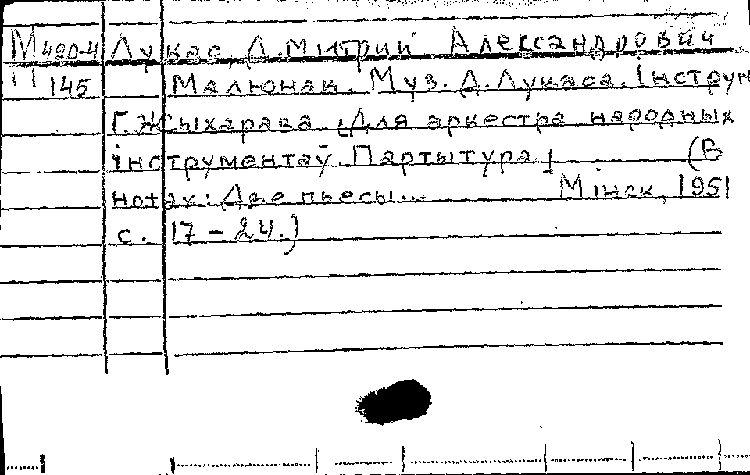 М 490-4 Лукас, Дмитрий Александрович
П 145 Малюнак. Муз. Д. Лукаса. Інструм
Г. Жыхарава. [Для аркестра народных
інструментаў. Партытура] (В
нотах: Две пьесы... Мінск, 1951
с. 17 - 24.)